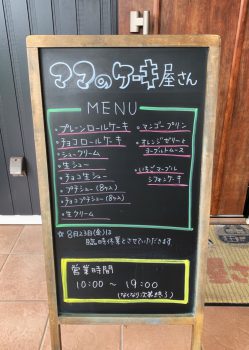 ママのケーキ屋さん
MENU
・プレーンロールケーキ
・チョコロールケーキ
・シュークリーム
・生シュー
・チョコ生シュー
・プチシュー(8ケ入)
・チョコプチシュー(8ケ入)
・生クリーム
・マンゴープリン
・オレンジゼリーと
ヨーグルトムース
・いちごマーブル
シフォンケーキ
☆ 8月23日(金)は
臨時休業とさせていただきます
営業時間
10:00 〜 19:00
(なくなり次第終了)